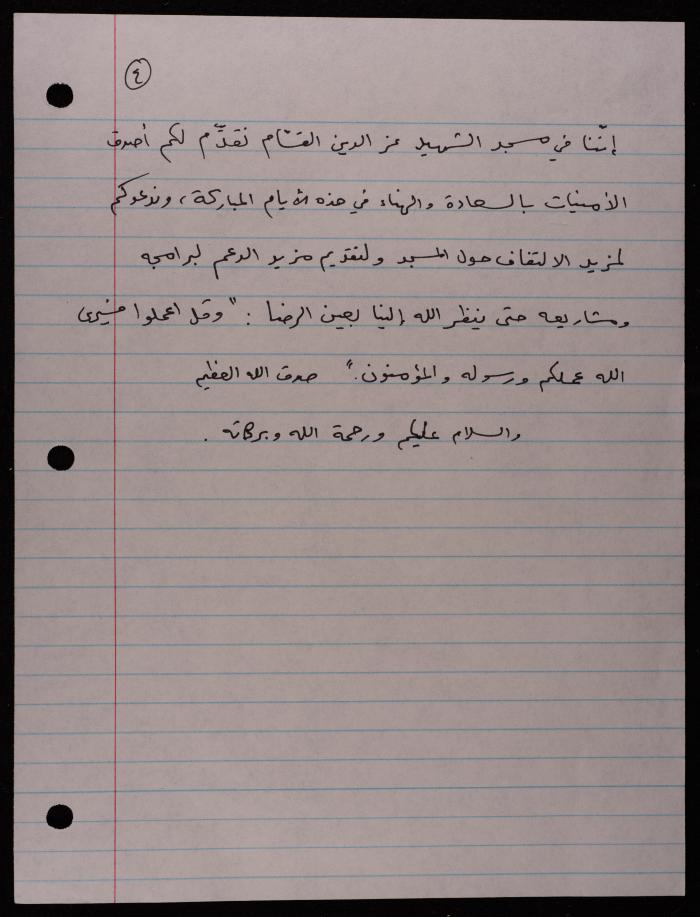 ٤
إنّنا في مسجد الشهيد عز الدين القسّام نقدّم لكم أصدق
الأمنيات بالسعادة والهناء في هذه الأيام المباركة، وندعوكم
لمزيد الالتفاف حول المسجد ولتقديم مزيد الدعم لبرامجه
ومشاريعه حتى ينظر الله إلينا بعين الرضا : " وقل اعملوا فسيرى
الله عملكم ورسوله والمؤمنون." صدق الله العظيم
والسلام عليكم ورحمة الله وبركاته .